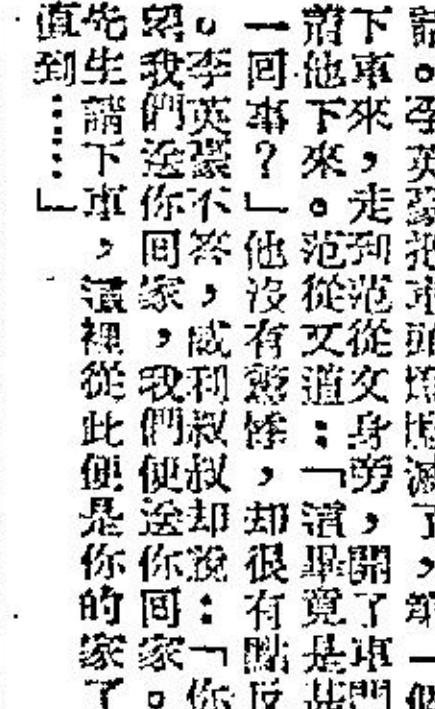 話。李英豪把車頭燈熄滅了，第一個
下車來，走到范從文身旁，開了車門
請他下來。范從文道：「這畢竟是甚
一回事？」他沒有驚悸，却很有點反
。李英豪不答，威利叔叔却說：「你
我們送你回家，我們便送你回家。
先生請下車，這裡從此便是你的家了
直到……」